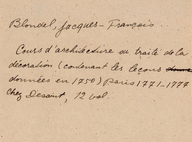 Blondel, Jacques-François
Cours d'architecture ou traité de la
décoration (contenant les leçons
données en 1750) Paris 1771-1777
Chez Desaint, 12 vol.